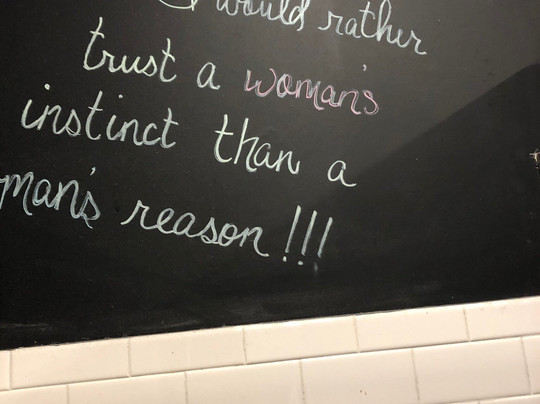 I would rather
trust a woman's
instinct than a
man's reason!!!